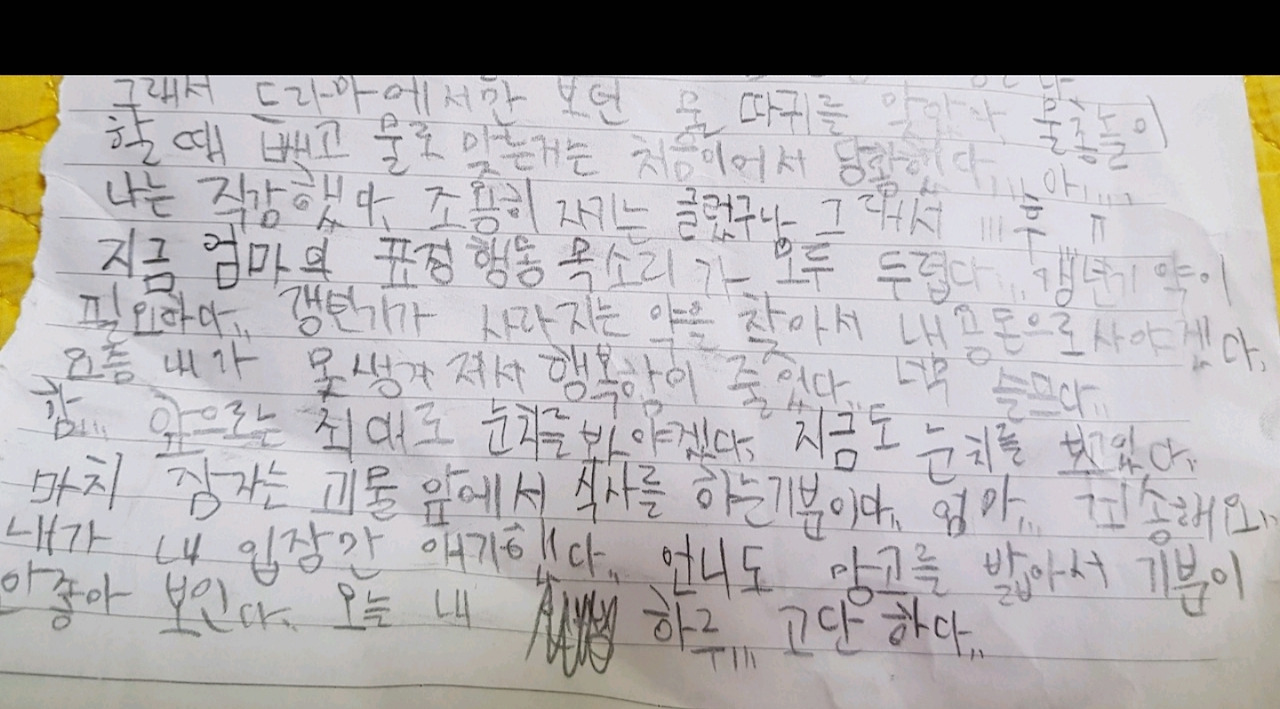 그래서 드라마에서만 보던 물 따귀를 맞았다 물총놀이
할 때 빼고 물로 맞는거는 처음이어서 당황했다,,, 아,,,,
나는 직감했다, 조용히 자기는 글렀구나, 그래서 ,,, 휴 ㅠ
지금 엄마의 표정 행동 목소리가 모두 두렵다,,, 갱년기 약이
필요하다,, 갱년기가 사라지는 약을 찾아서 내 용돈으로 사야겠다,
요즘 내가 못생겨져서 행복함이 줄었다,, 너무 슬프다,,
참,,, 앞으로는 최대로 눈치를 봐야겠다, 지금도 눈치를 보고있다,
마치 잠자는 괴물 앞에서 식사를 하는기분이다,, 엄마,,, 죄송해요,,
내가 내 입장만 얘기했다,, 언니도 망고를 밟아서 기분이
안좋아 보인다, 오늘 내 하루,,, 고단하다,,